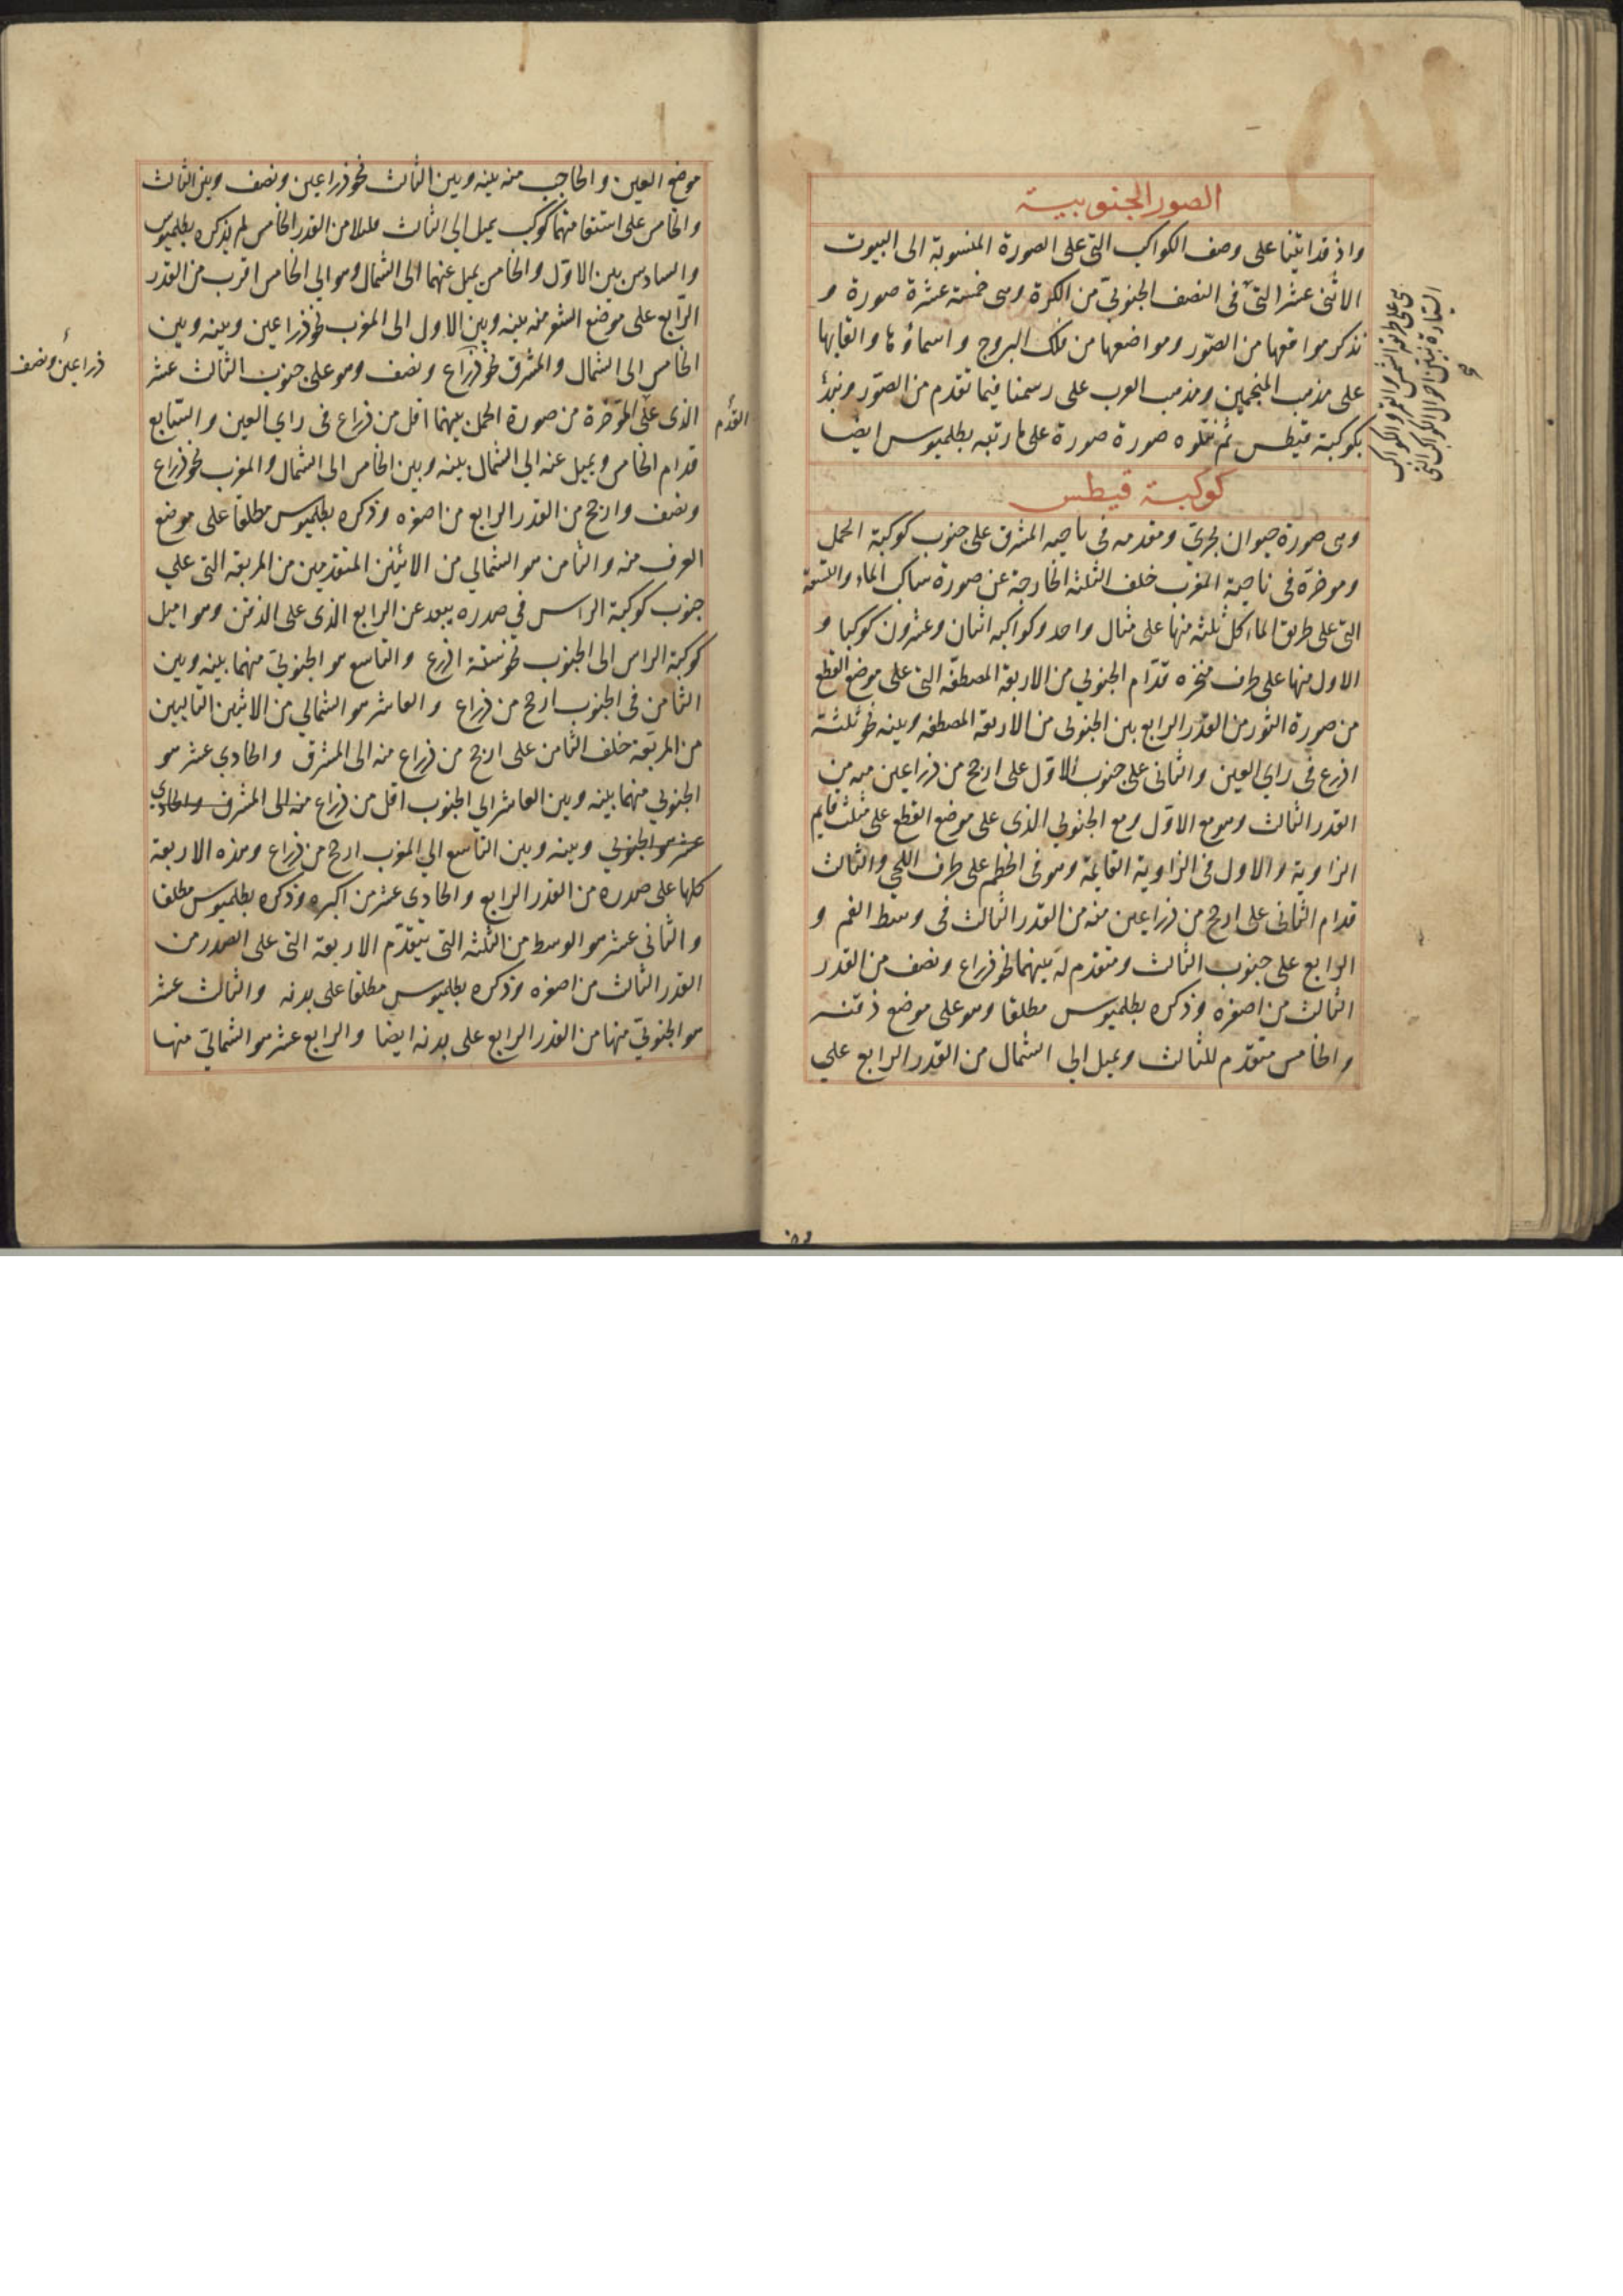 الصور الجنوبية
واذ قد اتينا على وصف الكواكب التى على الصورة المنسوبة الى البيوت
الاثنى عشر التى فى النصف الجنوبىّ من الكرة وهى خمسة عشرة صورة و
نذكر مواقعها من الصّور ومواضعها من فلك البروج واسماؤها والقابها
على مذهب المنجمين ومذهب العرب على رسمنا فيما تقدم من الصّور ونبدُأ
بكوكبة قيطس ثم نتلوه صورة صورة على ما رتبه بطلميوس ايضا
هى على طريقة الشمس والقمر والكواكب
السيارة نبين احوال الكواكب التى
كوكبة قيطس
وهى صورة حيوان بحرىّ ومقدمه فى ناحيه المشرق على جنوب كوكبة الحمل
وموخره فى ناحية المغرب خلف الثلثة الخارجة عن صورة ساكب الماء والتسعة
التى على طريق الماء كل ثلثه منها على مثال واحد وكواكبه اثنان وعشرون كوكبا و
الاول منها على طرف منخره قدّام الجنوبي من الاربعة المصطفّه التى على موضع القطع
من صورة الثور من القدر الرابع بين الجنوبى من الاربعة المصطفه وبينه نحو ثلثة
اذرع فى راي العين والثانى على جنوب الاوّل على ارجح من ذراعين منه من
القدر الثالث وهو مع الاوّل ومع الجنوبي الذى على موضع القطع على مثلث قايم
الزاوية والاول فى الزاوية القايمة وهو فى الخطم على طرف اللحي والثالث
قدام الثانى على ارجح من ذراعين منه من القدر الثالث فى وسط الفم و
الرابع على جنوب الثالث ومتقدم له بينهما نحو ذراع ونصف من القدر
الثالث من اصغره وذكره بطلميوس مطلقا وهو على موضع ذقنه
والخامس متقدّم للثالث ويميل الي الشمال من القدر الرابع علي
موضع العين والحاجب منه بينه وبين الثالث نحو ذراعين ونصف وبين الثالث
والخامس على استقامتهما كوكب يميل الي الثالث قليلا من القدر الخامس لم يذكره بطلميوس
والسادس بين الاوّل والخامس يميل عنهما الى الشمال وهو الي الخامس اقرب من القدر
الرّابع على موضع الشعر منه بينه وبين الاول الى المغرب نحو ذراعين وبينه وبين
الخامس الى الشمال والمشرق نحو ذراع ونصف وهو على جنوب الثالث عشر
ذراعين ونصف
الذى على المؤخرة من صورة الحمل بينهما اقل من ذراع فى راي العين والسّابع
القدم
قدام الخامس ويميل عنه الي الشمال بينه وبين الخامس الى الشمال والمغرب نحو ذراع
ونصف وارجح من القدر الرابع من اصغره وذكره بطلميوس مطلقا على موضع
العرف منه والثامن هو الشمالي من الاثنين المتقدمين من المربعة التى علي
جنوب كوكبة الراس في صدره يبعد عن الرابع الذى على الذقن وهو اميل
كوكبة الراس الى الجنوب نحو ستة اذرع والتاسع هو الجنوبىّ منهما بينه وبين
الثامن فى الجنوب ارجح من ذراع والعاشر هو الشمالي من الاثنين التاليين
من المربّعة خلف الثامن على ارجح من ذراع منه الى المشرق والحادي عشر هو
الجنوبي منهما بينه وبين العاشر الي الجنوب اقل من ذراع منه الى المشرق والحادي
عشر هو الجنوبي وبينه وبين التاسع الي المغرب ارجح من ذراع وهذه الاربعة
كلها على صدره من القدر الرابع والحادى عشر من اكبره وذكره بطلميوس مطلقا
والثانى عشر هو الوسط من الثلثه التى يتقدّم الاربعة التى على الصدر من
القدر الثالث من اصغره وذكره بطلميوس مطلقا على بدنه والثالث عشر
هو الجنوبىّ منها من القدر الرابع على بدنه ايضا والرابع عشر هو الشمالىّ منها